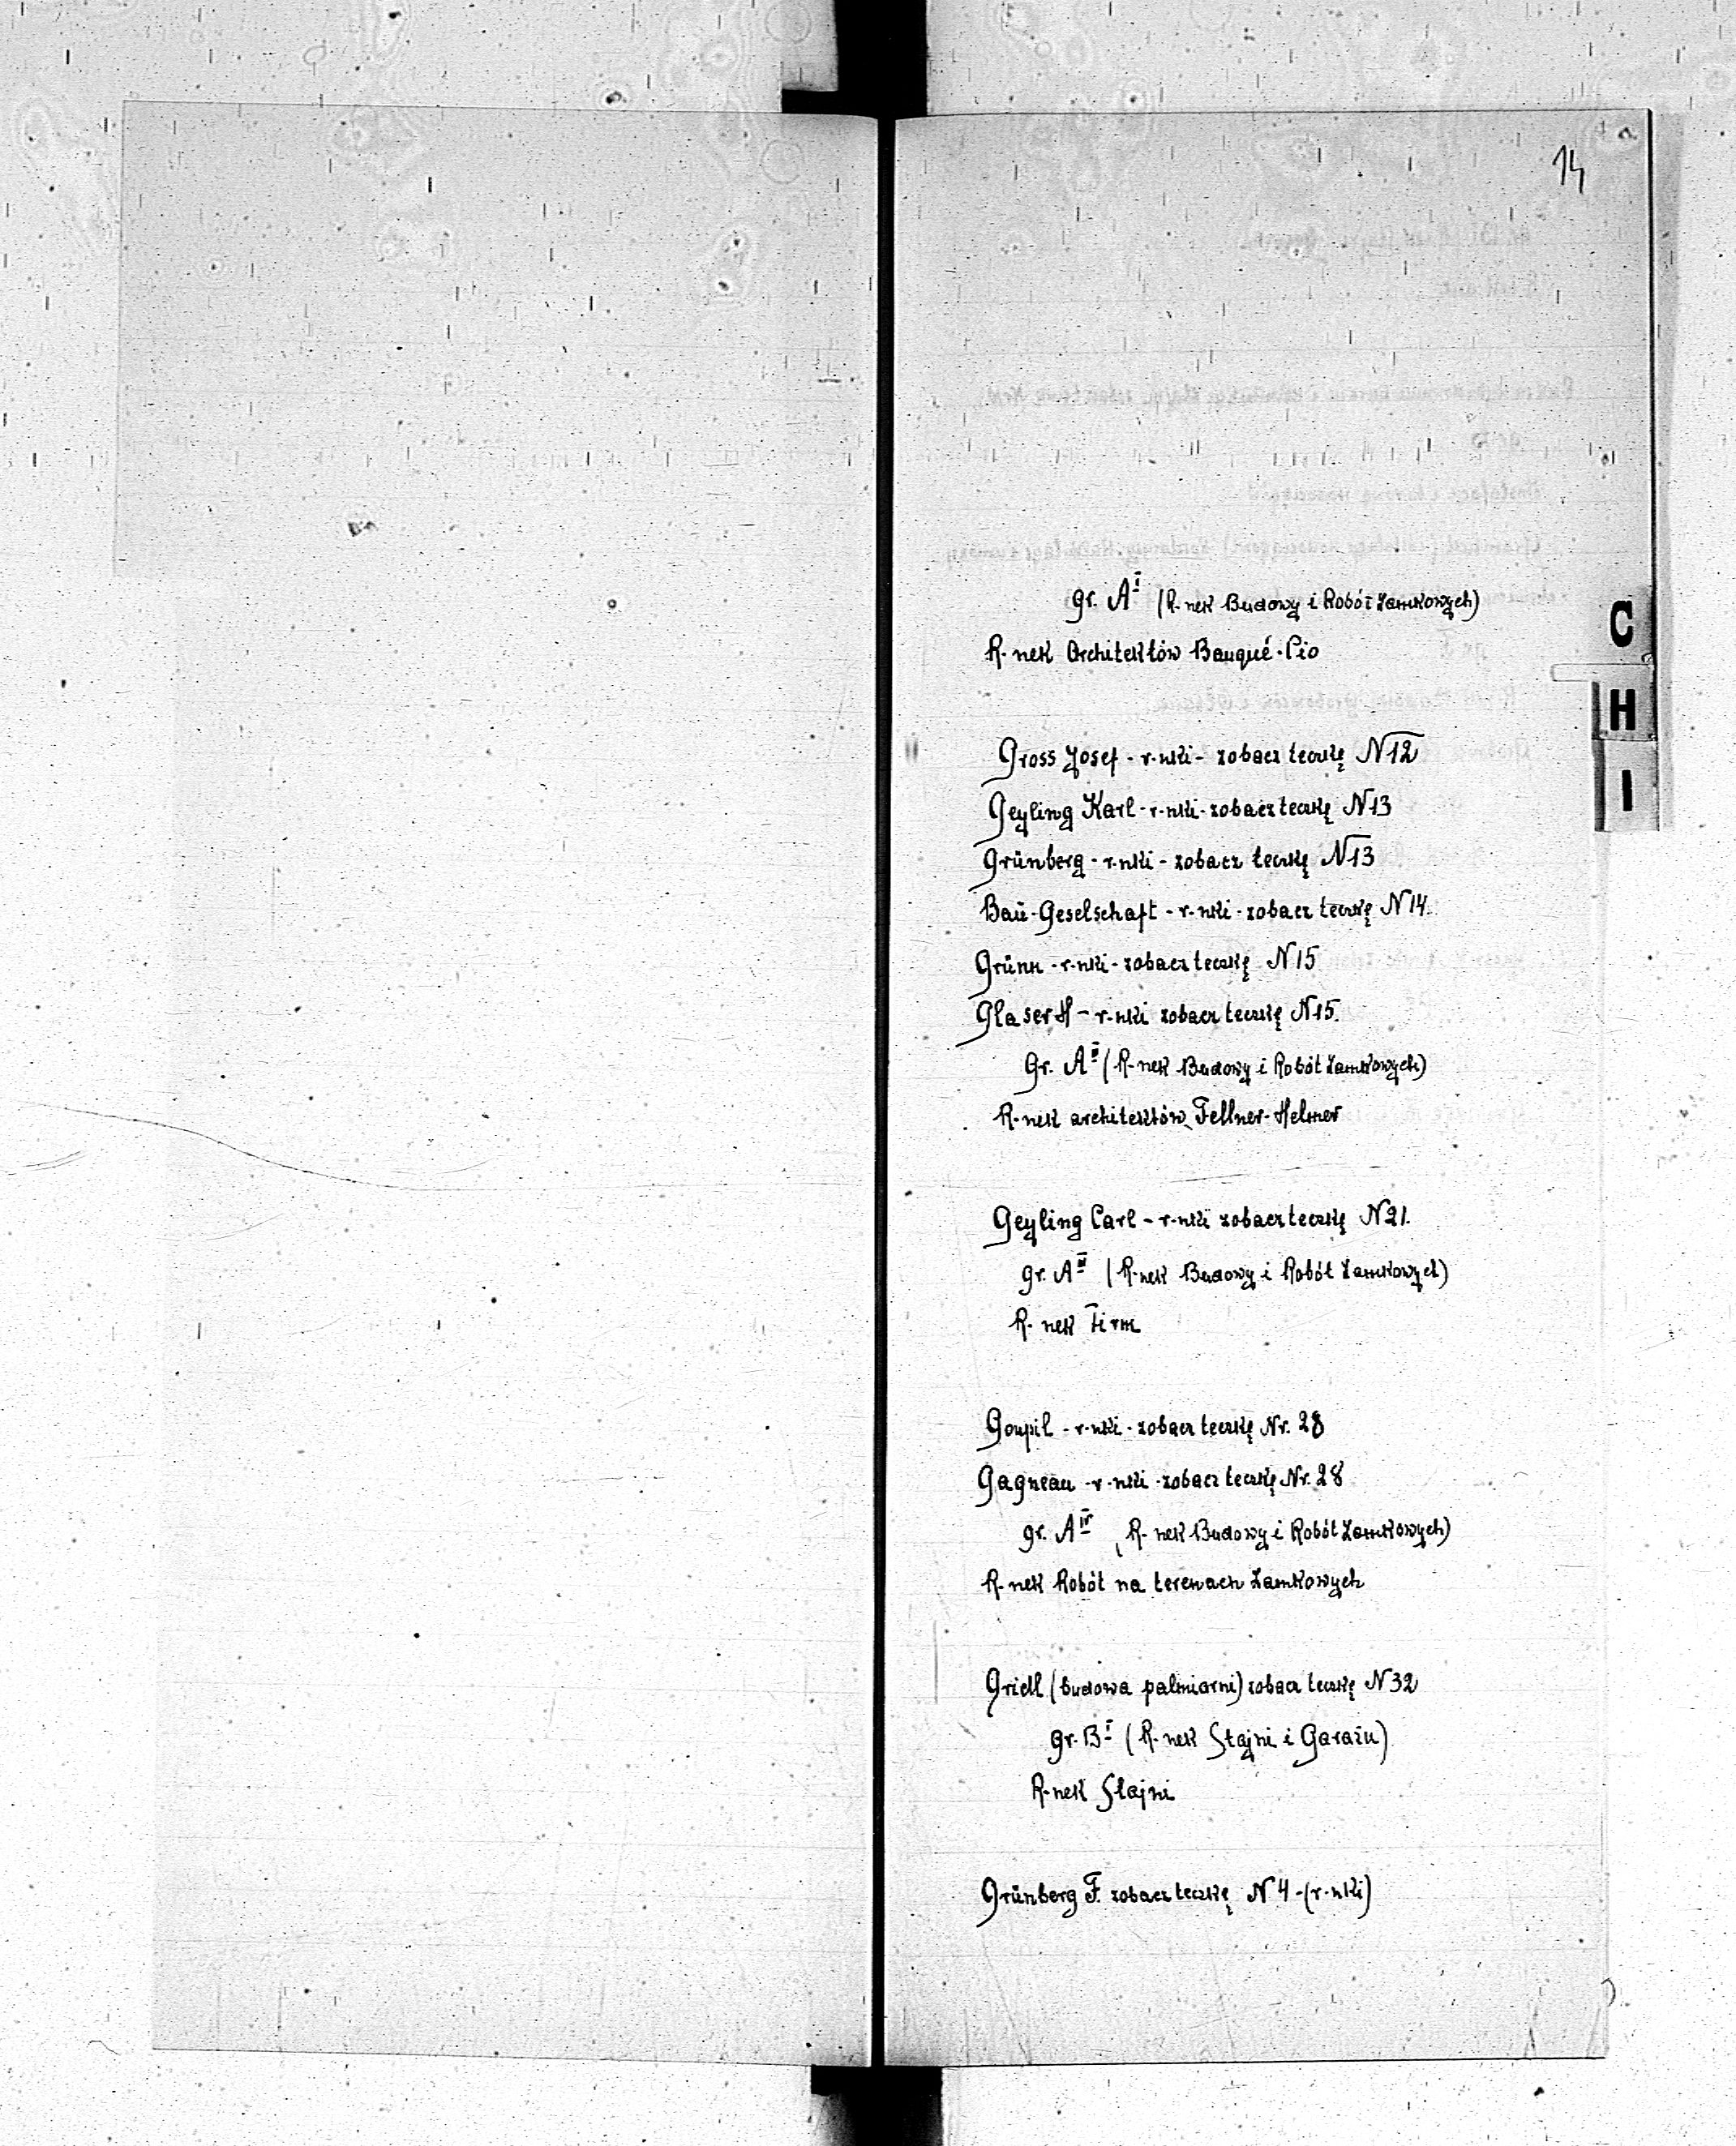 14
gr. A I (R-nek Budowy i Robót Zamkowych)
R-nek Architektów Bauqué-Pio
C
H
I
Gross Josef - r-nki - zobacz teczkę N12
Geyling Karl - r-nki - zobacz teczkę N13
Grünberg - r-nki - zobacz teczkę N13
Baŭ-Geselschaft - r-nki - zobacz teczkę N14.
Grünn - r-nki - zobacz teczkę N15
Glaser H - r-nki zobacz teczkę N15.
gr. A II (R-nek Budowy i Robót Zamkowych)
R-nek architektów Fellner-Helmer
Geyling Carl - r-nki zobacz teczkę N21.
gr. A III (R-nek Budowy i Robót Zamkowych)
R-nek Firm
Goupil - r-nki - zobacz teczkę Nr. 28
Gagneau - r-nki - zobacz teczkę Nr. 28
gr. A IV (R-nek Budowy i Robót Zamkowych)
R-nek Robót na terenach Zamkowych
Gridl (budowa palmiarni) zobacz teczkę N32
gr. B I (R-nek Stajni i Garażu)
R-nek Stajni
Grünberg F. zobacz teczkę N4 - (r-nki)